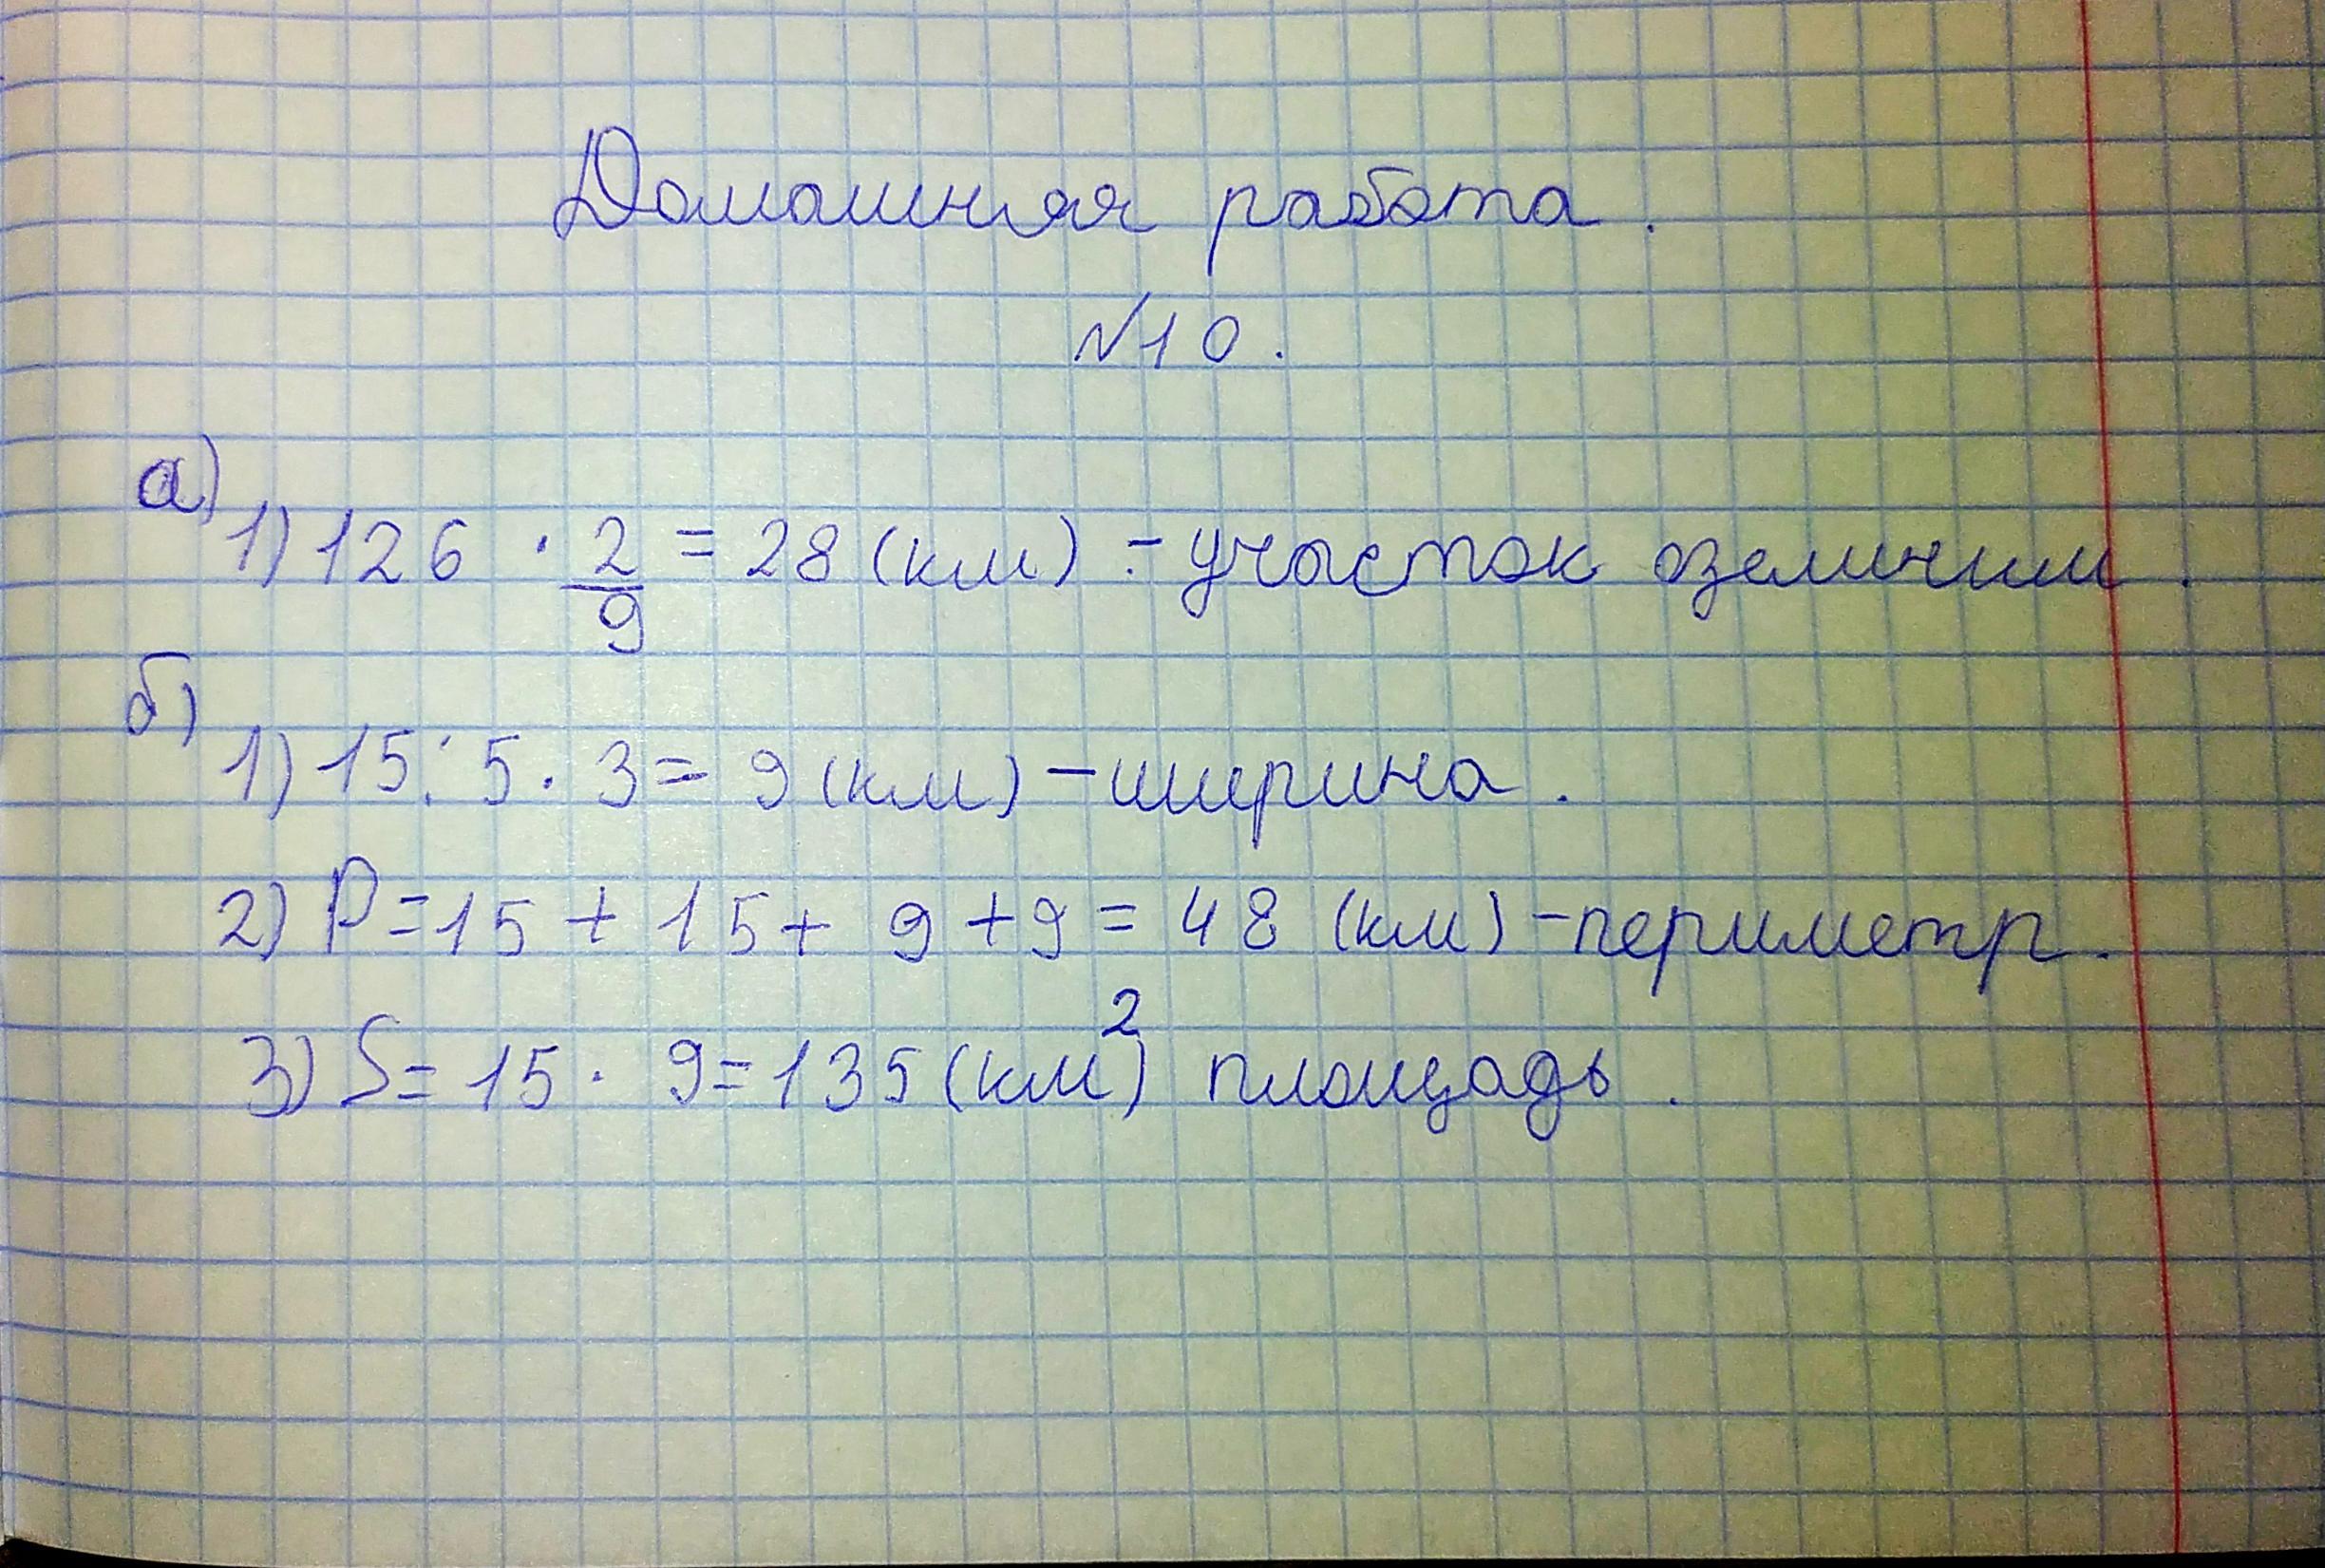 Домашняя работа.
№10.
а)
1) 126 · 2/9 = 28 (км) - участок озеличим.
б)
1) 15 : 5 · 3 = 9 (км) - ширина.
2) P = 15 + 15 + 9 + 9 = 48 (км) - периметр.
3) S = 15 · 9 = 135 (км²) площадь.